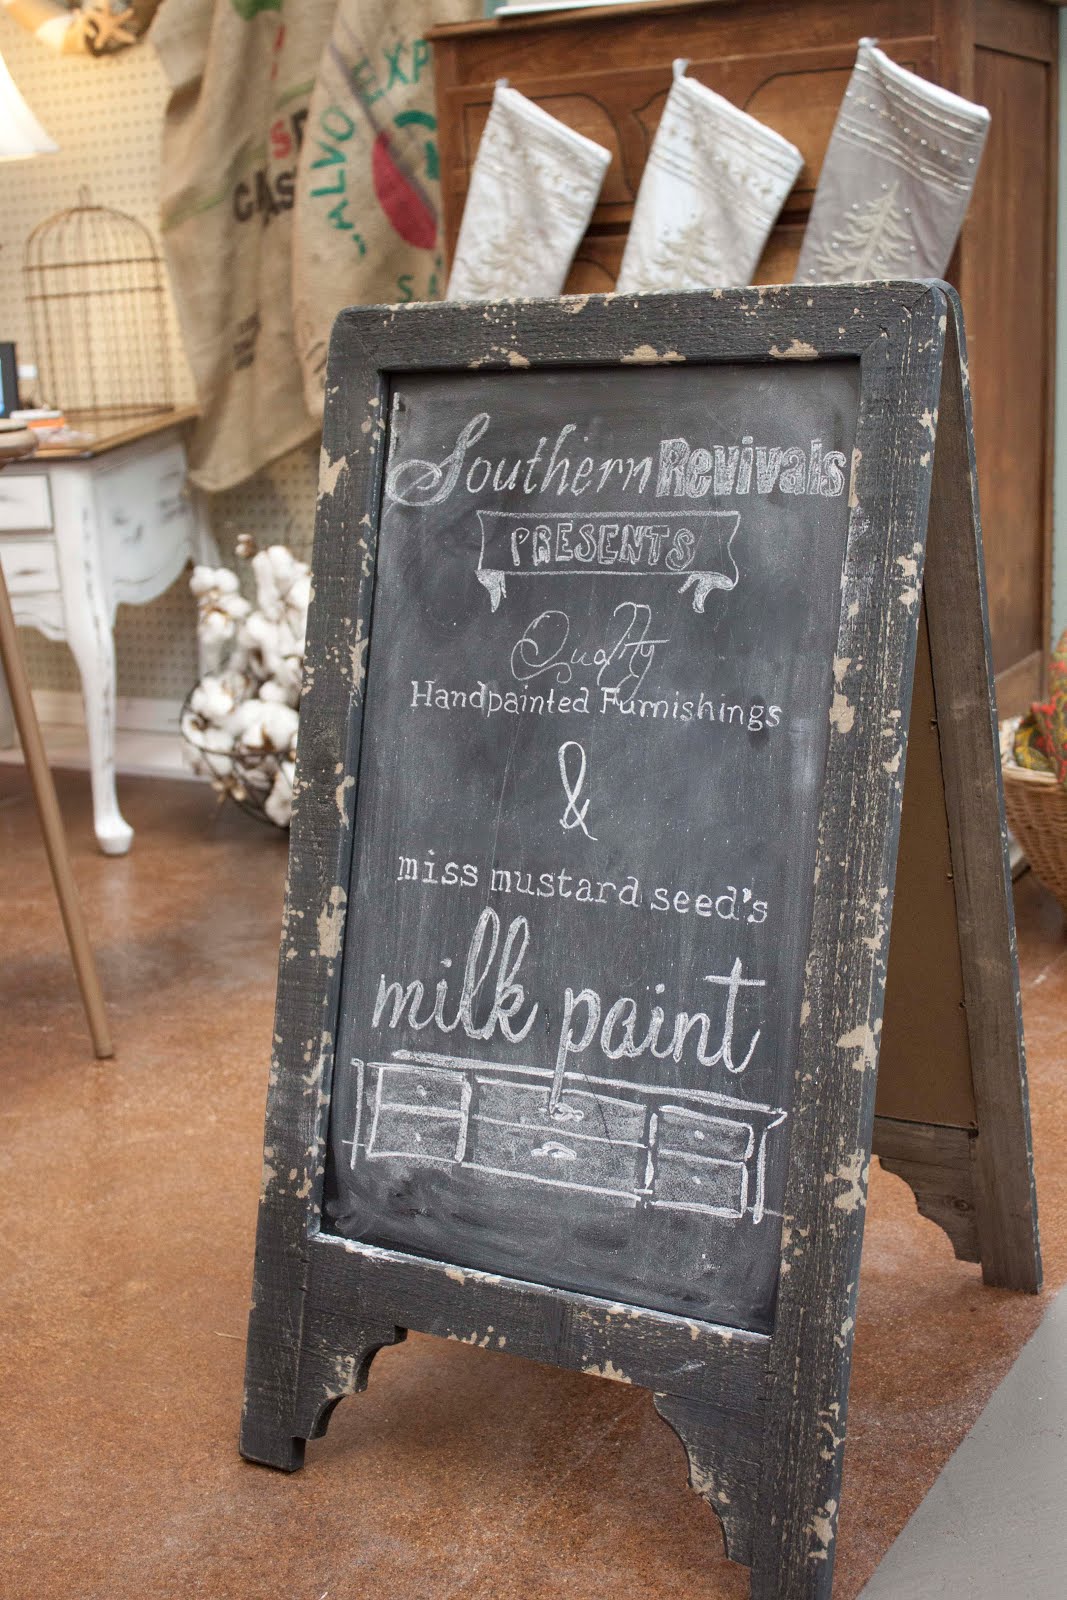 ALVO EXP
CAS
S
Southern Revivals
PRESENTS
Quality
Handpainted Furnishings
&
miss mustard seed's
milk paint